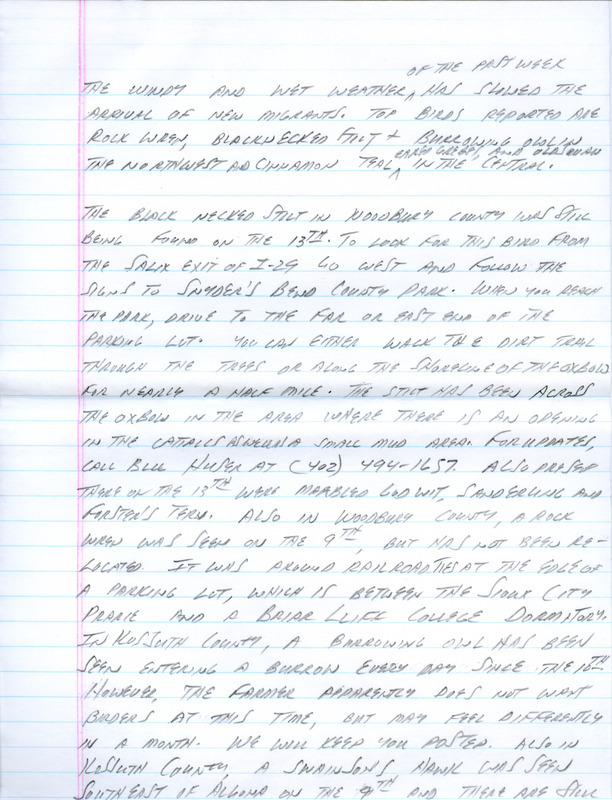 OF THE PAST WEEK
THE WINDY AND WET WEATHER, ^ HAS SLOWED THE
ARRIVAL OF NEW MIGRANTS. TOP BIRDS REPORTED ARE
ROCK WREN, BLACKNECKED STILT + BURROWING OWL IN
EARED GREBE, AND
THE NORTHWEST AD CINNAMON TEAL ^ IN THE CENTRAL.
THE BLACK NECKED STILT IN WOODBURY COUNTY WAS STILL
BEING FOUND ON THE 13TH. TO LOOK FOR THIS BIRD FROM
THE SALIX EXIT OF I-29 GO WEST AND FOLLOW THE
SIGNS TO SNYDER'S BEND COUNTY PARK. WHEN YOU REACH
THE PARK, DRIVE TO THE FAR OR EAST END OF THE
PARKING LOT. YOU CAN EITHER WALK THE DIRT TRAIL
THROUGH THE TREES OR ALONG THE SHORELINE OF THE OXBOW
FOR NEARLY A HALF MILE. THE STILT HAS BEEN ACROSS
THE OXBOW IN THE AREA WHERE THERE IS AN OPENING
IN THE CATAILS AS WELL AS A SMALL MUD AREA. FOR UPDATES,
CALL BILL HUSER AT (402) 494-1657. ALSO PRESENT
THERE ON THE 13TH WERE MARBLED GODWIT, SANDERLING AND
FORSTER'S TERN. ALSO IN WOODBURY COUNTY, A ROCK
WREN WAS SEEN ON THE 9TH, BUT HAS NOT BEEN RE-
LOCATED. IT WAS AROUND RAILROAD TIES AT THE EDGE OF
A PARKING LOT, WHICH IS BETWEEN THE SIOUX CITY
PRARIE AND A BRIAR CLIFF COLLEGE DORMITORY.
IN KOSSUTH COUNTY, A BURROWING OWL HAS BEEN
SEEN ENTERING A BURROW EVERY DAY SINCE THE 10TH
HOWEVER, THE FARMER APPARENTLY DOES NOT WANT
BIRDERS AT THIS TIME, BUT MAY FEEL DIFFERENTLY
IN A MONTH. WE WILL KEEP YOU POSTED. ALSO IN
KOSSUTH COUNTY, A SWAINSON'S HAWK WAS SEEN
SOUTHEAST OF ALGONA ON THE 9TH AND THERE ARE STILL